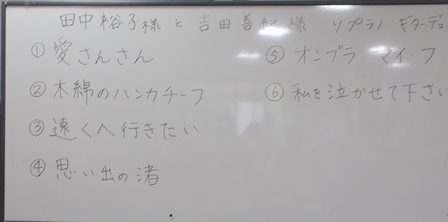 田中裕子様 と 吉田善紀様 ソプラノ ギターデュ
① 愛さんさん
② 木綿のハンカチーフ
③ 遠くへ行きたい
④ 思い出の渚
⑤ オンブラ マイ・フ
⑥ 私を泣かせて下さい